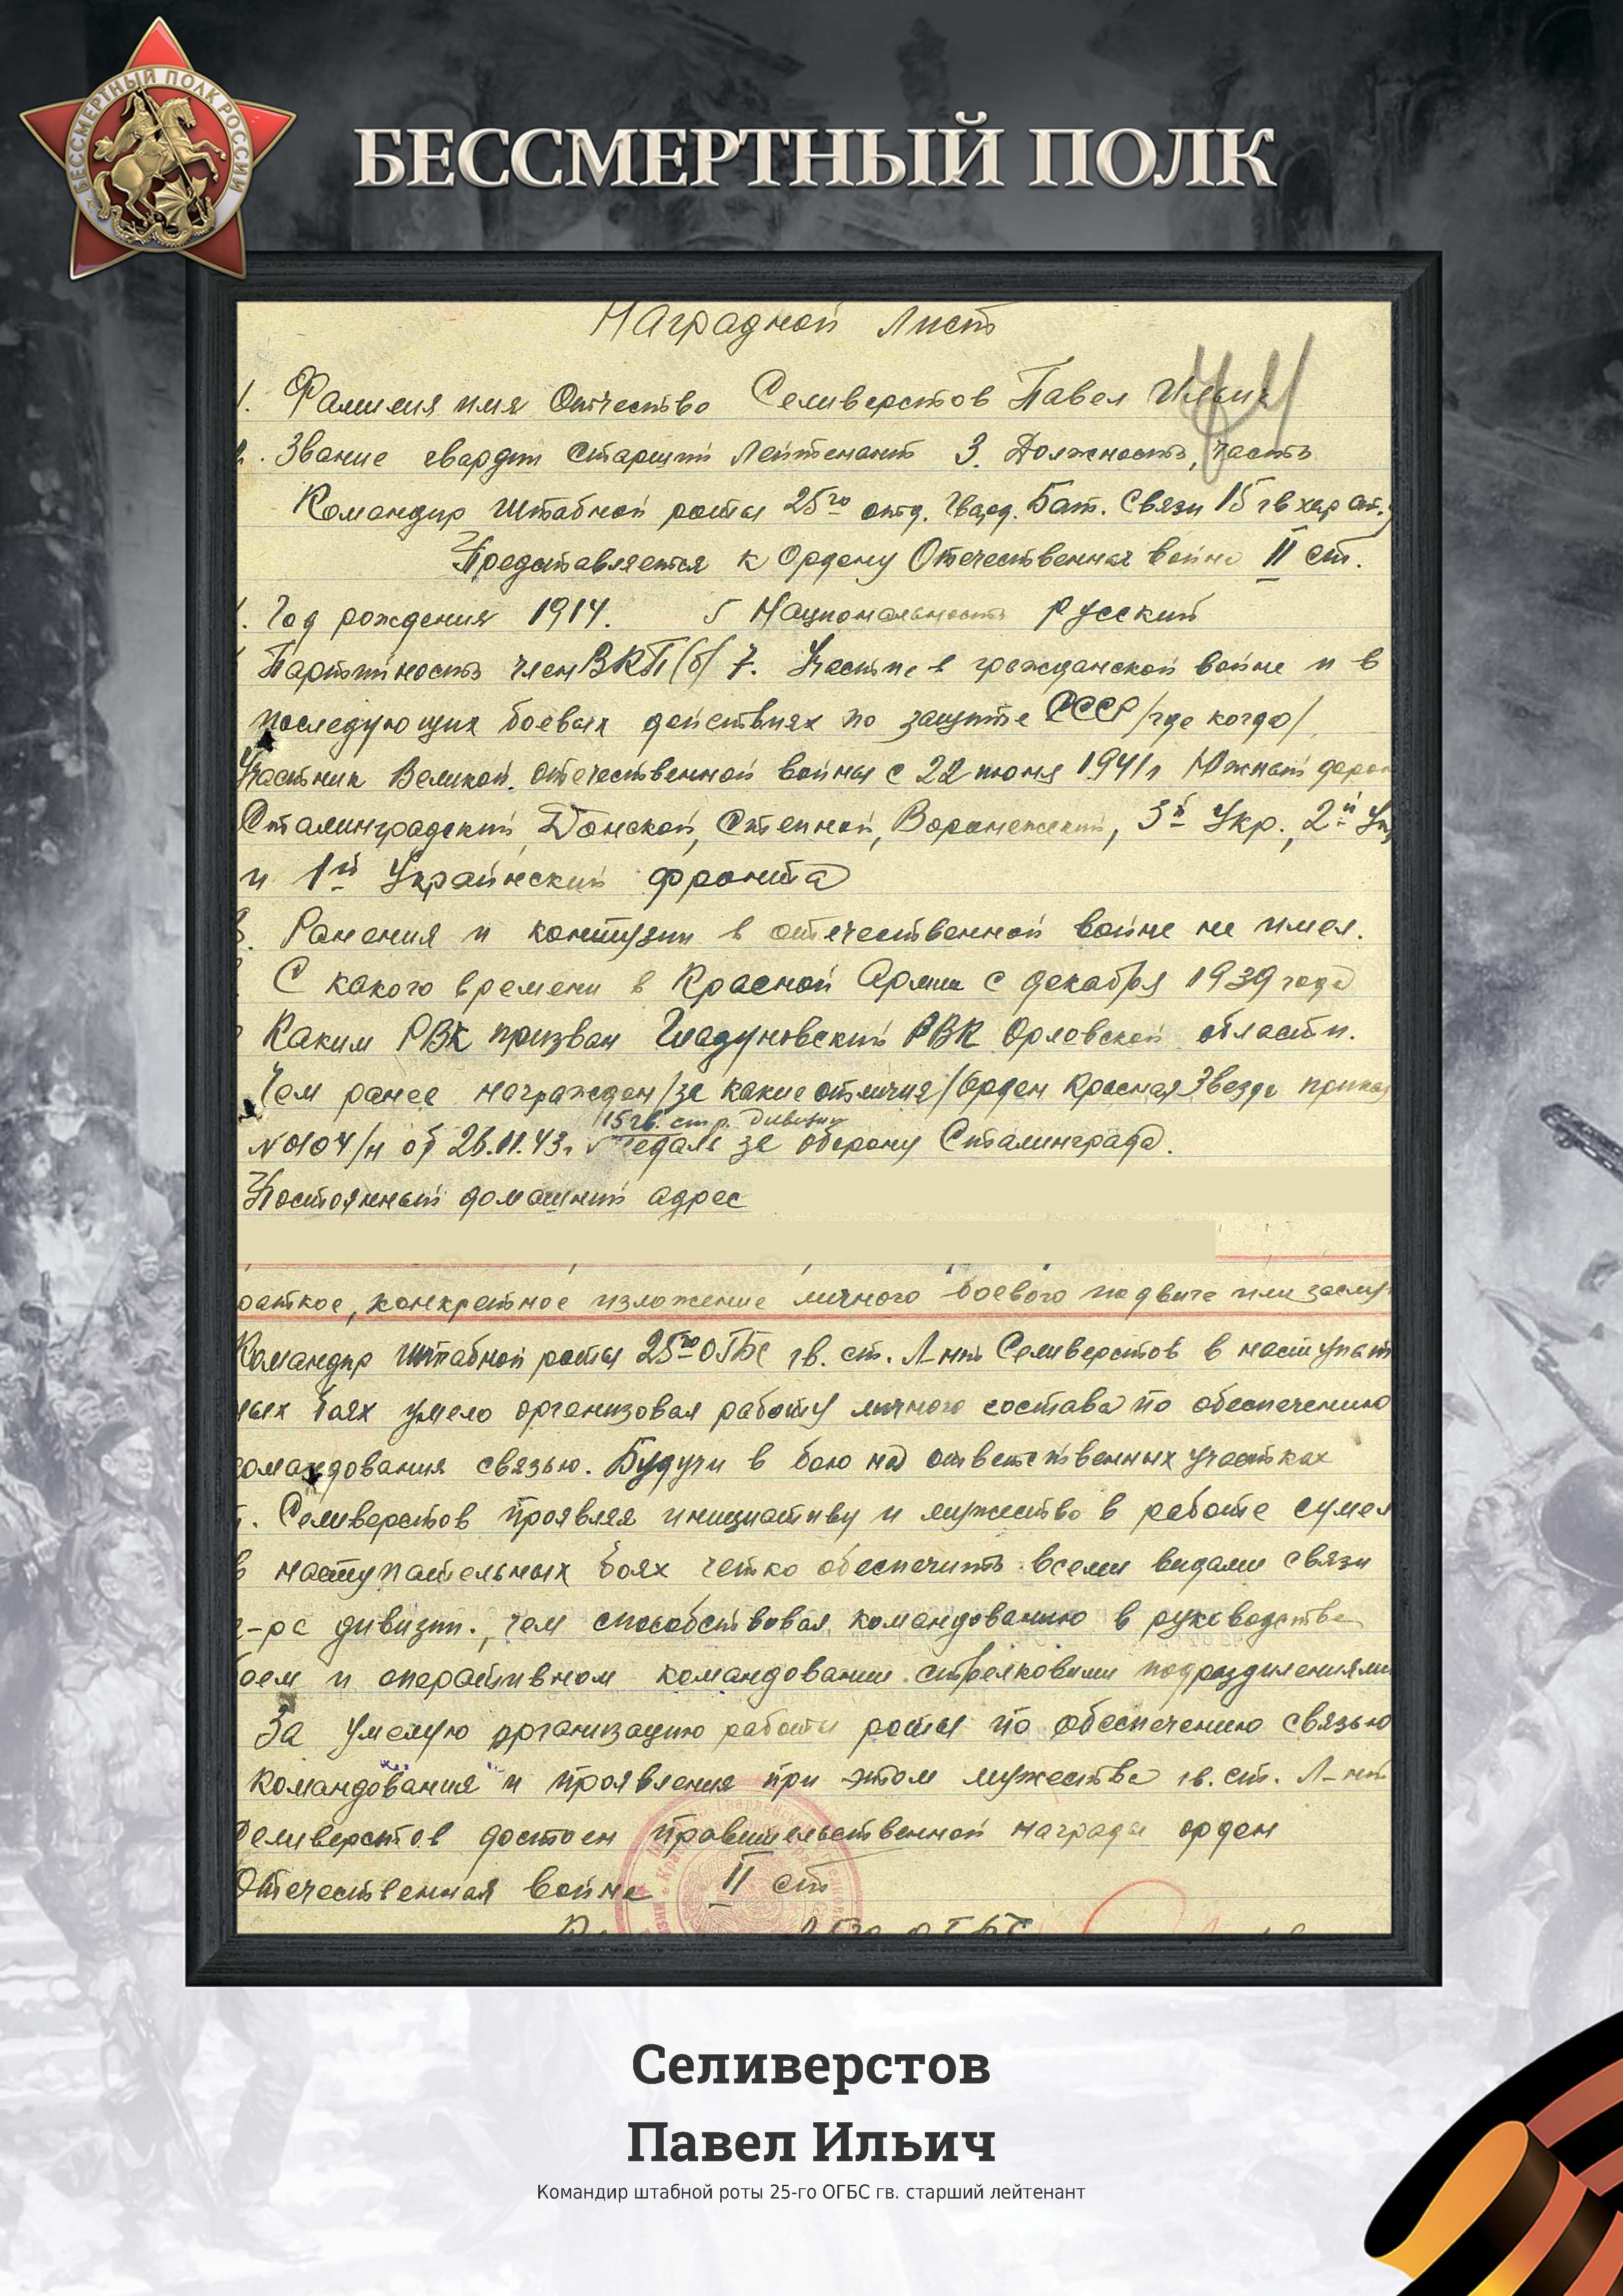 БЕССМЕРТНЫЙ ПОЛК РОССИИ
БЕССМЕРТНЫЙ ПОЛК
Наградной лист
1. Фамилия имя Отчество Селиверстов Павел Ильич
2. Звание гвардии Старший Лейтенант 3. Должность, часть
Командир Штабной роты 25го отд. Гвард. Бат. Связи 15 гв хар
Представляется к Ордену Отечественная война II ст.
Год рождения 1914. 5 Национальность Русский
Партийность член ВКП(б) 7. Участие в гражданской войне и в
последующих боевых действиях по защите СССР /где когда/
Участник Великой. отечественной войны с 22 июня 1941г Южный
Сталинградский, Донской, Степной, Воронежский, 3й Укр., 2й
и 1й Украинский фронта
8. Ранения и контузии в отечественной войне не имел.
С какого времени в Красной Армии с декабря 1939 года
Каким РВК призван РВК Орловской области.
Чем ранее награжден /за какие отличия/ Орден Красная Звезда приказ
15 гв. стр. дивизии
№ 0104/н от 26.11.43г. медаль за оборону Сталинграда.
Постоянный домашний адрес
раткое, конкретное изложение личного боевого подвига или заслуг
Командир штабной роты 25го ОГБС гв. ст. Л-нт Селиверстов в наступат
ных боях умело организовал работу личного состава по обеспечению
командования связью. Будучи в бою на ответственных участках
т. Селиверстов проявляя инициативу и мужество в работе сумел
в наступательных боях четко обеспечить всеми видами связи
к-ра дивизии., чем способствовал командованию в руководстве
боем и оперативном командовании стрелковыми подразделениями
За умелую организацию работы роты по обеспечению связью
командования и проявления при этом мужества гв. ст. Л-нт
Селиверстов достоен правительственной награды орден
Отечественная война II ст
Селиверстов
Павел Ильич
Командир штабной роты 25-го ОГБС гв. старший лейтенант